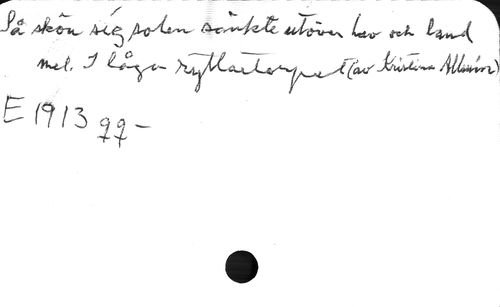 Så skön sig solen sänkte utöver hav och land
mel. I låga ryttartorpet (av Kristina
E 1913 qq –